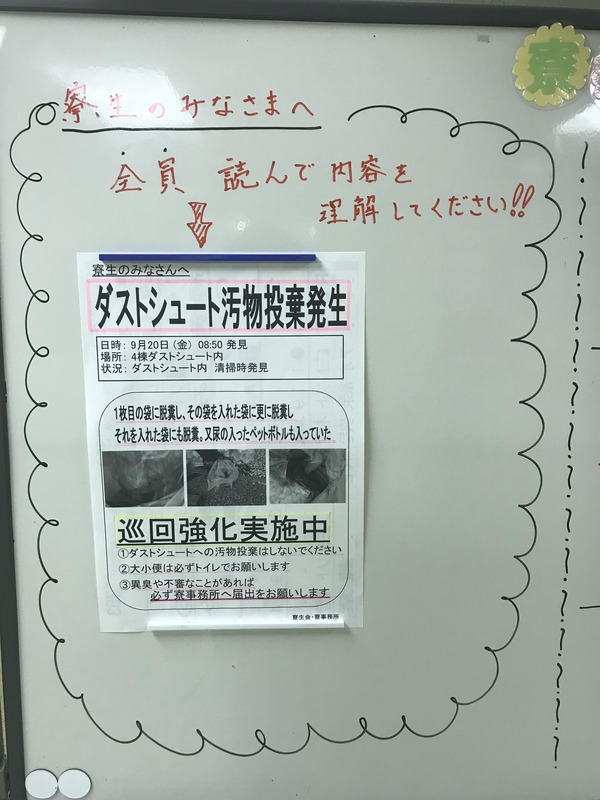 寮
寮生のみなさまへ
全員 読んで 内容を
理解してください!!
寮生のみなさんへ
ダストシュート汚物投棄発生
日時： 9月20日（金） 08:50 発見
場所： 4棟ダストシュート内
状況： ダストシュート内 清掃時発見
1枚目の袋に脱糞し、その袋を入れた袋に更に脱糞し
それを入れた袋にも脱糞。又尿の入ったペットボトルも入っていた
巡回強化実施中
①ダストシュートへの汚物投棄はしないでください
②大小便は必ずトイレでお願いします
③異臭や不審なことがあれば
必ず寮事務所へ届出をお願いします
寮生会・寮事務所